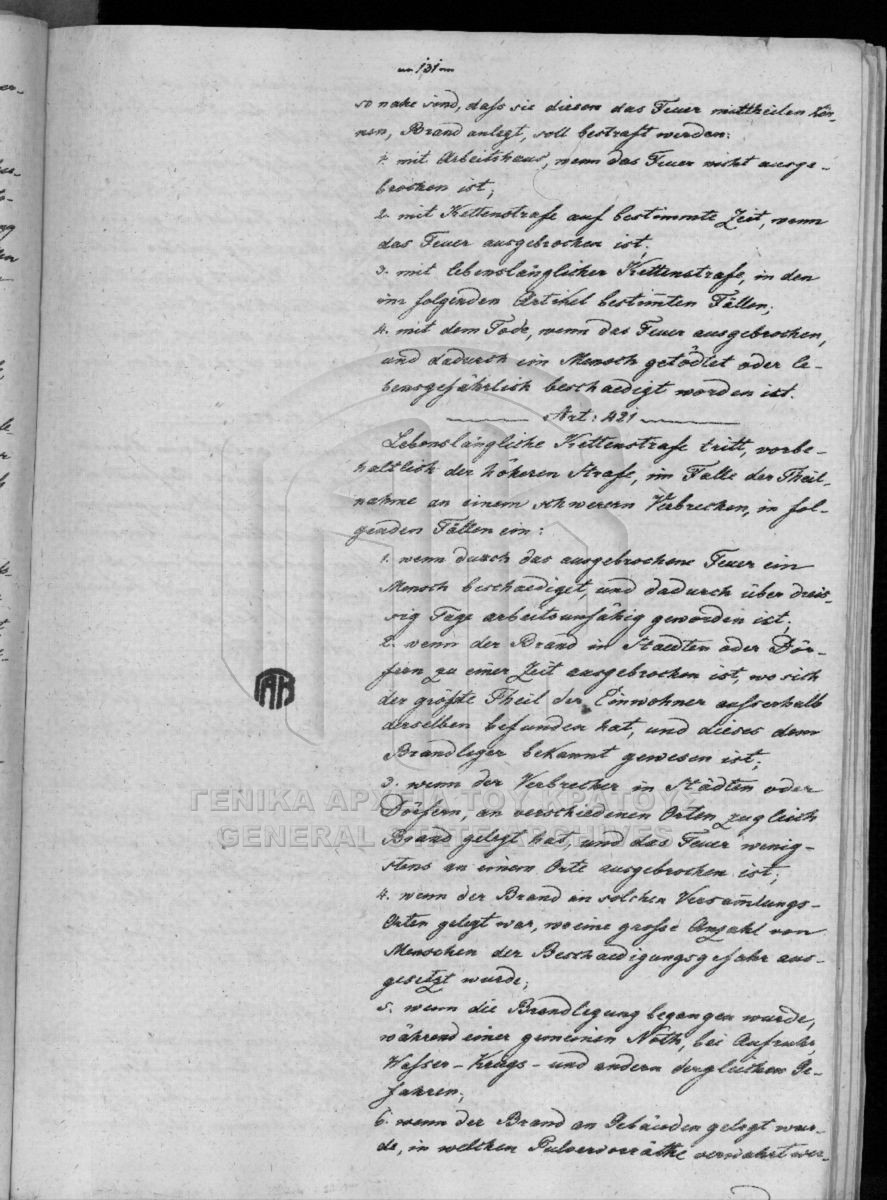 131
so nahe sind, daſs sie diesen das Feuer mittheilen kön-
nen, Brand anlegt, soll bestraft werden:
1. mit Arbeitshaus, wenn das Feuer nicht ausge-
brochen ist;
2. mit Kettenstrafe auf bestimmte Zeit, wenn
das Feuer ausgebrochen ist;
3. mit lebenslänglicher Kettenstrafe, in den
im folgenden Artikel bestim̄ten Fällen;
4. mit dem Tode, wenn das Feuer ausgebrochen,
und dadurch ein Mensch getödtet oder le-
bensgefährlich beschaedigt worden ist.
Art: 421
Lebenslängliche Kettenstrafe tritt, vorbe-
haltlich der höheren Strafe, im Falle der Theil-
nahme an einem schwerern Verbrechen, in fol-
genden Fällen ein:
1. wenn durch das ausgebrochene Feuer ein
Mensch beschaediget, und dadurch über dreis-
sig Tage arbeitsunfähig geworden ist;
2. wenn der Brand in Staedten oder Dör-
fern zu einer Zeit ausgebrochen ist, wo sich
der gröſste Theil der Einwohner ausserhalb
derselben befunden hat, und dieses dem
Brandleger bekannt gewesen ist;
3. wenn der Verbrecher in Städten oder
Dörfern, an verschiedenen Orten zugleich
Brand gelegt hat, und das Feuer wenig-
stens an einem Orte ausgebrochen ist;
4. wenn der Brand an solchen Versam̄lungs-
Orten gelegt war, wo eine grosse Anzahl von
Menschen der Beschaedigungsgefahr aus-
gesetzt wurde;
5. wenn die Brandlegung begangen wurde,
während einer gemeinen Noth, bei Aufruhr,
Waſser- Kriegs- und andern dergleichen Ge-
fahren;
6. wenn der Brand an Gebäuden gelegt wur-
de, in welchen Pulvervorräthe verwahrt wer-
ΓΕΝΙΚΑ ΑΡΧΕΙΑ ΤΟΥ ΚΡΑΤΟΥΣ
GENERAL STATE ARCHIVES